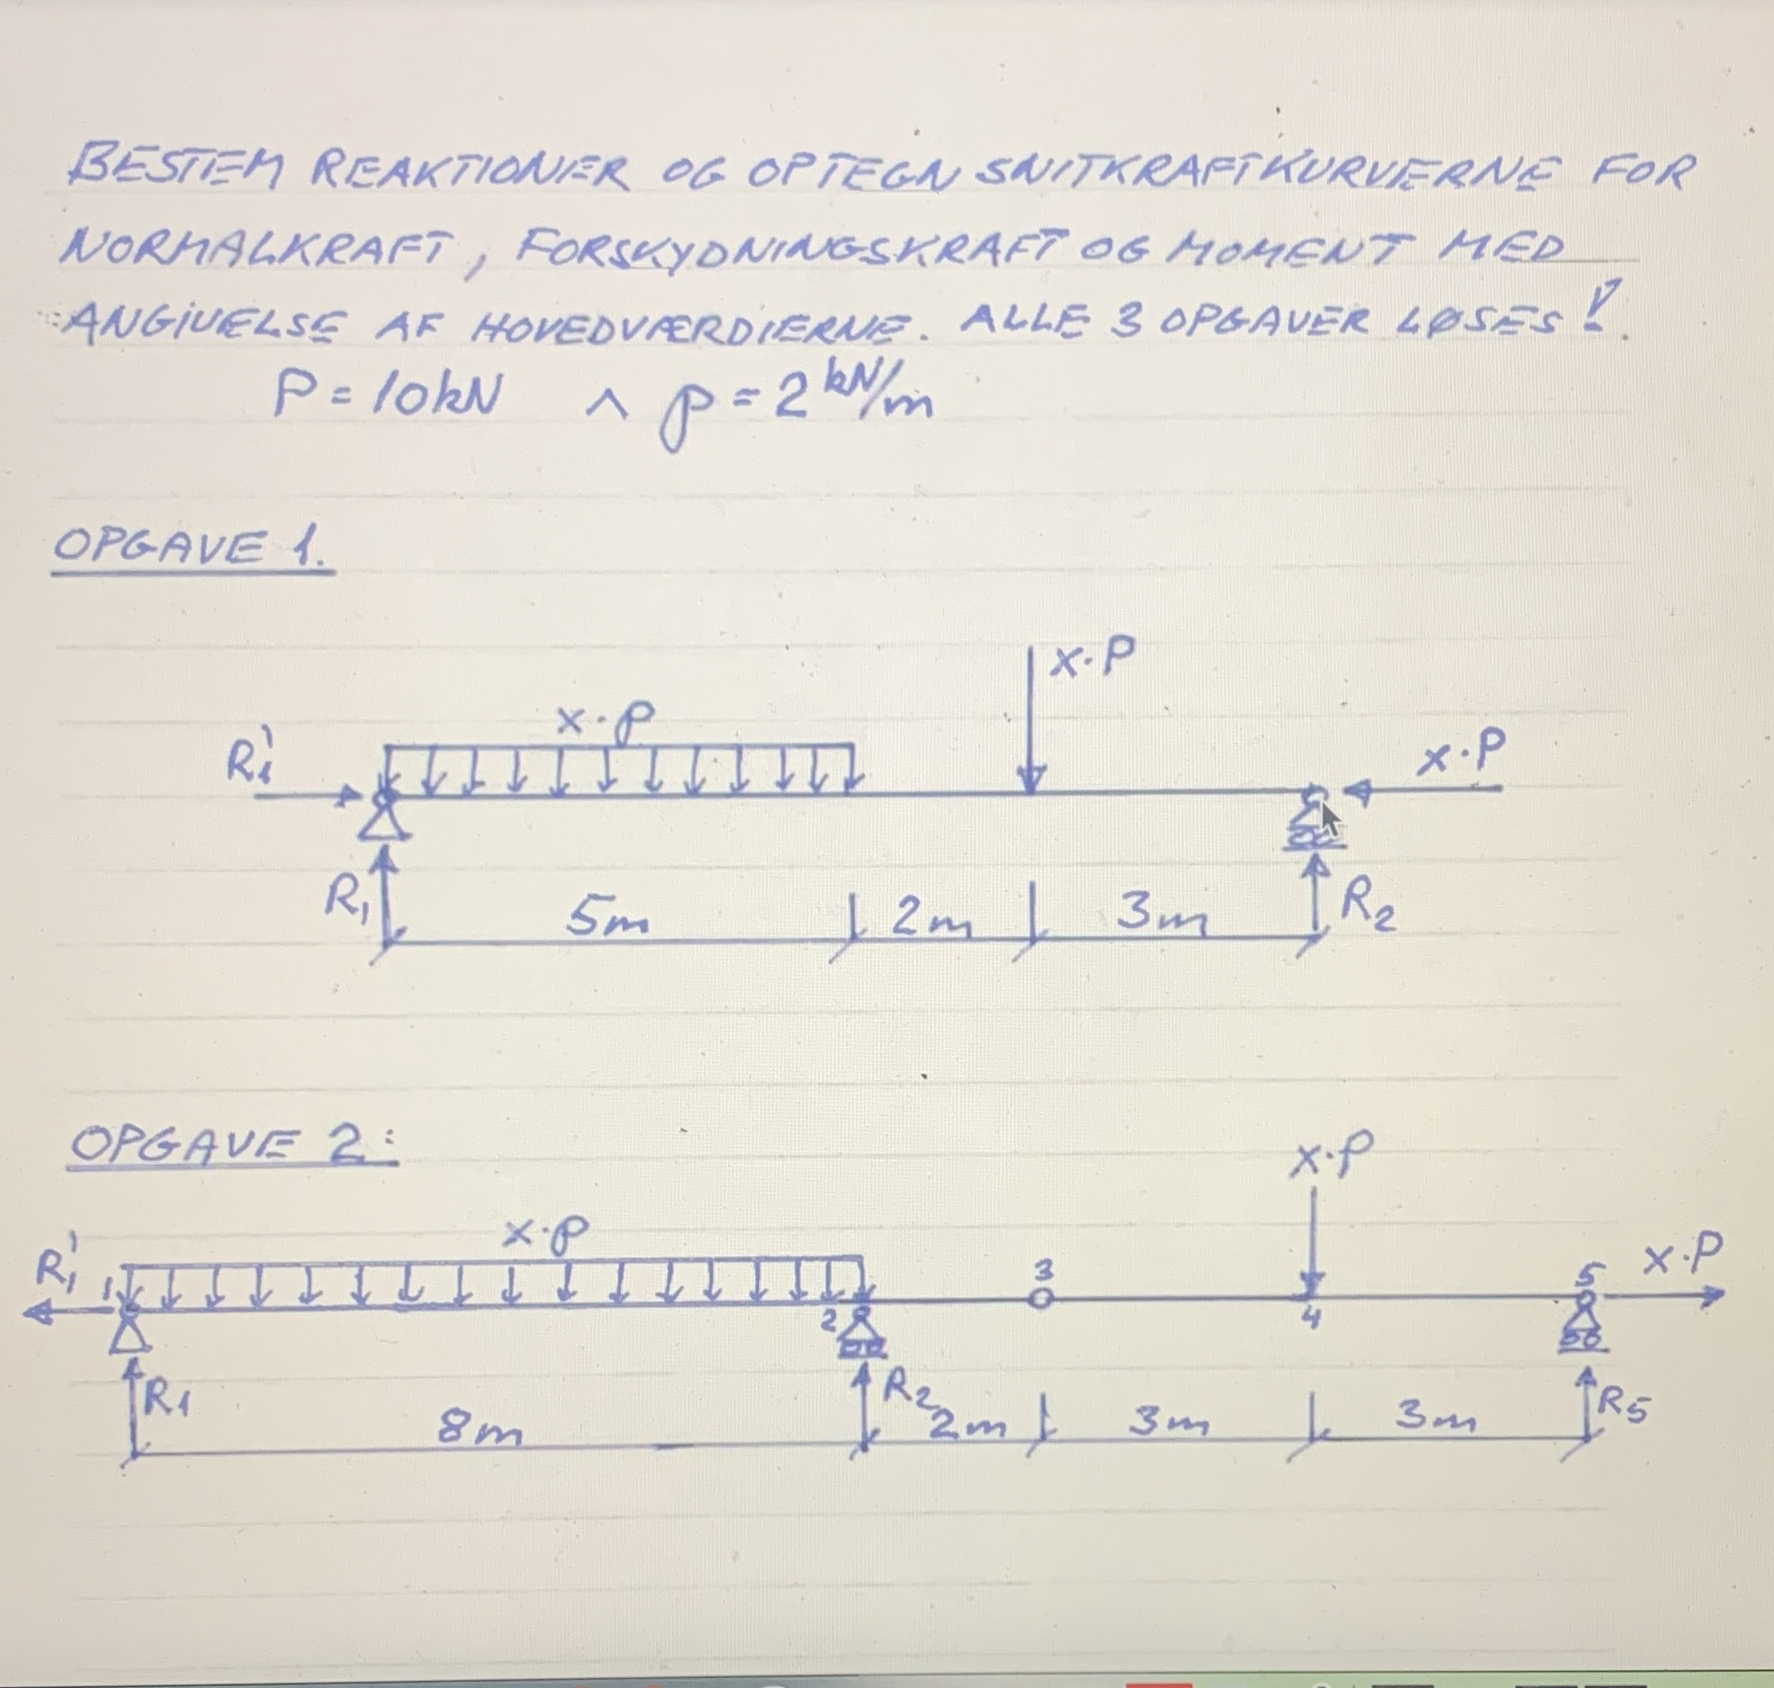 BESTEM REAKTIONER OG OPTEGN SNITKRAFTKURVERNE FOR
NORMALKRAFT, FORSKYDNINGSKRAFT OG MOMENT MED
ANGIVELSE AF HOVEDVÆRDIERNE. ALLE 3 OPGAVER LØSES!.
P = 10kN ∧ p = 2 kN/m
OPGAVE 1.
x·P
x·p
R₁'
x·P
R₁
5m
2m
3m
R₂
OPGAVE 2:
x·P
x·p
R₁'
1
3
5
x·P
2
4
R1
R₂
R5
8m
2m
3m
3m